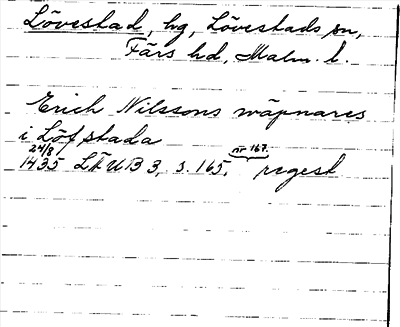 Lövestad, hg, Lövestads sn,
Färs hd, Malm. l.
Erich Nilssons wäpnares
i Löfstada
24/8 nr 167.
1435 LÄUB 3, s. 165, regest